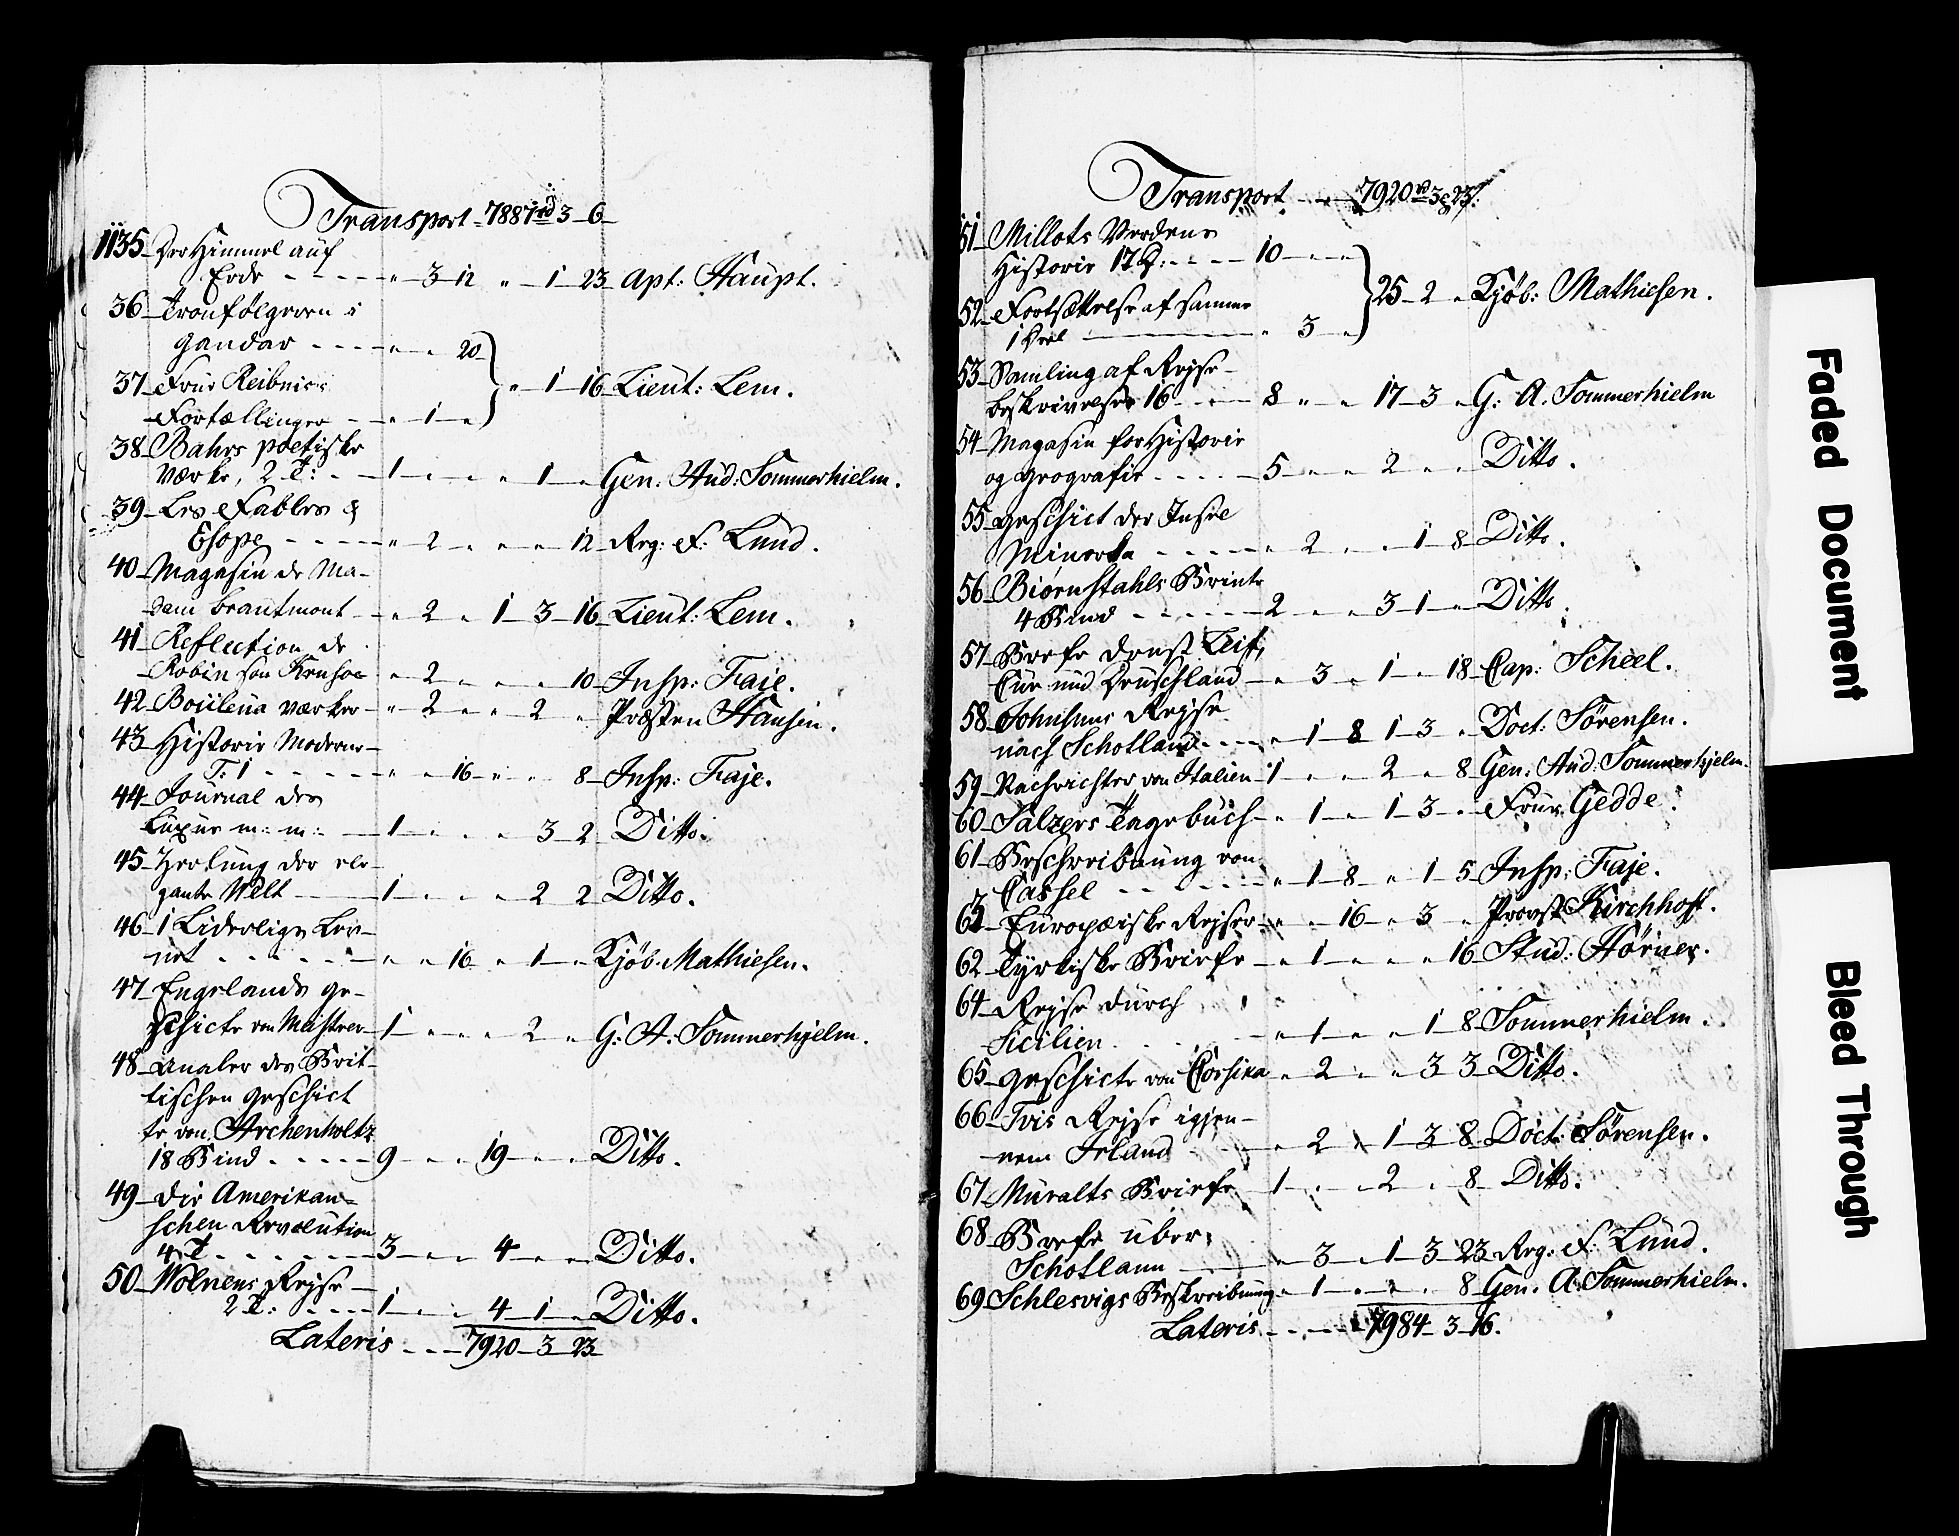 Transport - 7887 rd 3 - 6 -
1135 Der Himmel auf
Erde - - - - - " 3 12 " - 1 - 23 Apt: Haupt.
36 Tronfølgeren i
Gandar - - - - " - " 20
37 Frue Reibnics
Fortællinger - - " - 1 - " " - 1 - 16 Lieut: Lem.
38 Bahrs poetiske
Værke, 2 T: - - 1 - " - " - " - 1 - " Gen: Aud: Sommerhielm.
39 Les Fables &
Esope - - - - - " 2 - " - " - " 12 Reg: F: Lund.
40 Magasin de Ma-
dam brautmont - - " 2 - " 1 - 3 - 16 Lieut: Lem.
41 Reflection de
Robinson Krusoe - " 2 - " - " - " 10 Insp: Faje.
42 Boiileua værker - " 2 - " - " 2 - " Præsten Hansin.
43 Historie Moderne -
T: 1 - - - - - " - " 16 - " - " 8 Insp: Faje.
44 Journal des
Luxus m: m: - - 1 - " - " - " 3 - 2 Ditto.
45 Zeitung der ele-
gante Welt - - 1 - " - " - " 2 2 Ditto.
46 1 Liderligen Lev-
net - - - - - " - " 16 - " - 1 - " Kjøb: Mathiesen.
47 Engelands ge-
schicte von Meistrer - 1 - " - " - " 2 - " G: A: Sommerhjelm.
48 Analer des Brit-
tischen Geschict
te von Archenholtz
18 Bind - - - - - 9 - " - " 19 - " - " Ditto.
49 Die Amerikan-
schen Revolution
4 T - - - - - - 3 - " - " 4 - " - " Ditto.
50 Wolnens Rejse -
2 T: - - - - 1 - " - " 4 - 1 - " Ditto.
Lateris - - - 7920 - 3 - 23
Transport - - - 7920 rd 3 & 23 /:
51 Millots Verdens
Historie 17 T: - - - - 10 - " - "
52 Fortsættelse af samme
1 Deel - " 3 - " 25 - 2 - " Kjøb: Mathiesen.
53 Samling af Rejse-
beskrivelser 16 - - - 8 - " - " 17 - 3 - " G: A. Sommerhielm
54 Magasin for Historie
og Geografie - - - - 5 - " - " 2 - " - " Ditto.
55 Geschict der Insel
Minorka - - - - - " 2 - " - " 1 - 8 Ditto.
56 Biørnstahls Briefe
4 Bind - - - - - 2 - " - " 3 - 1 - " Ditto.
57 Brefe
Cur und Deuschland - " 3 - " 1 - " 18 Cap: Scheel.
58 Johnsons Rejse
nach Schotland - - - " 1 - 8 1 - 3 - " Doct: Sørensen.
59 Nachrichter von Italien 1 - " - " 2 - " 8 Gen: Aud: Sommerhjelm.
60 Salzers Tagebuch - " 1 - " 1 - 3 - " Frue Gedde.
61 Beschreibung von
Cassel - - - - - " 1 - 8 - " 1 - 5 Insp: Faje.
62 Europæiske Rejser - " - " 16 - " 3 - " Provst Kirchhoff.
62 Tyrkiske Briefe - " 1 - " - " - " 16 Stud: Hørner.
64 Rejse durch
Sicilien - - - " 1 - " - " 1 8 Sommerhielm.
65 Geschicte von Corsika - " 2 - " - " 3 3 Ditto.
66 Tvis Rejse igjen-
nem Irland - " 2 - " 1 - 3 8 Doct: Sørensen.
67 Muralts Briefe - 1 - " - " 2 - " 8 Ditto.
68 Brefe über
Schotlann - " 3 - " 1 - 3 23 Reg: F: Lund.
69 Schlesvigs Beskreibung " 1 - " - " - " 8 Gen. A: Sommerhielm.
Lateris - - - - 7984 - 3 - 16.
Faded Document
Bleed Through